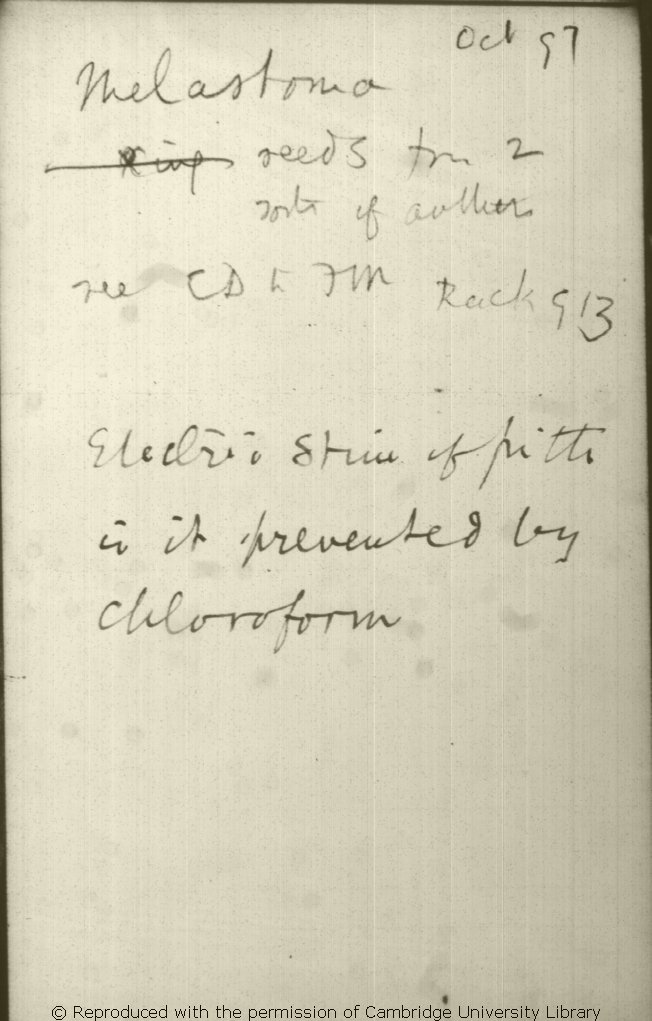 Oct 97
Melastoma
King seeds from 2
sorts of anthers
see CD to FM Rack 913
Electric stim of pith
is it prevented by
Chloroform
© Reproduced with the permission of Cambridge University Library